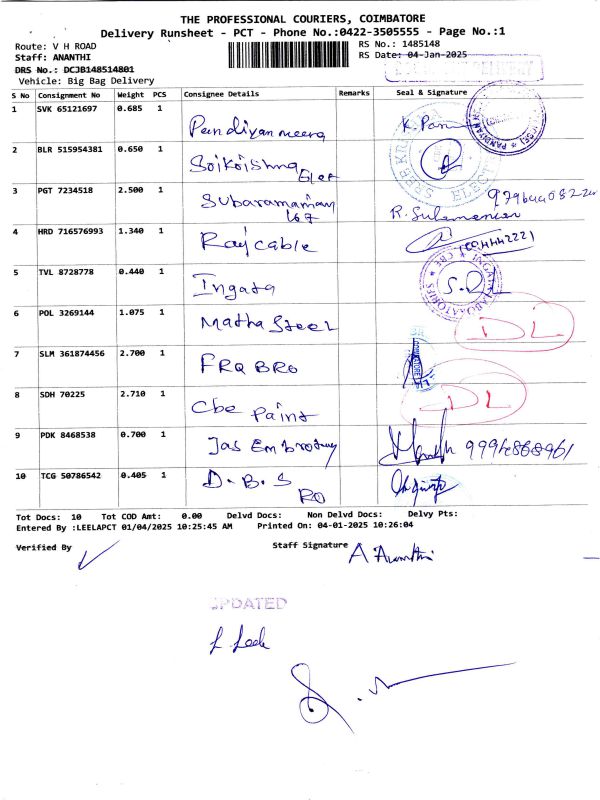 THE PROFESSIONAL COURIERS, COIMBATORE
Delivery Runsheet - PCT - Phone No.:0422-3505555 - Page No.:1
Route: V H ROAD
RS No.: 1485148
Staff: ANANTHI
RS Date: 04-Jan-2025
DRS No.: DCJB148514801
Vehicle: Big Bag Delivery
S No Consignment No Weight PCS Consignee Details Remarks Seal & Signature
1 SVK 65121697 0.685 1 Pandiyan meera
2 BLR 515954381 0.650 1
3 PGT 7234518 2.500 1 Subaramaniam
4 HRD 716576993 1.340 1 Raj cable
5 TVL 8728778 0.440 1 Ingata S.D
6 POL 3269144 1.075 1 Matha Steel DL
7 SLM 361874456 2.700 1 FRQ BRO
8 SDH 70225 2.710 1 Cbe Paint DL
9 PDK 8468538 0.700 1 Jas
10 TCG 50786542 0.405 1 D.B.S RO
Tot Docs: 10 Tot COD Amt: 0.00 Delvd Docs: Non Delvd Docs: Delvy Pts:
Entered By :LEELAPCT 01/04/2025 10:25:45 AM Printed On: 04-01-2025 10:26:04
Verified By Staff Signature A Ananthi
UPDATED